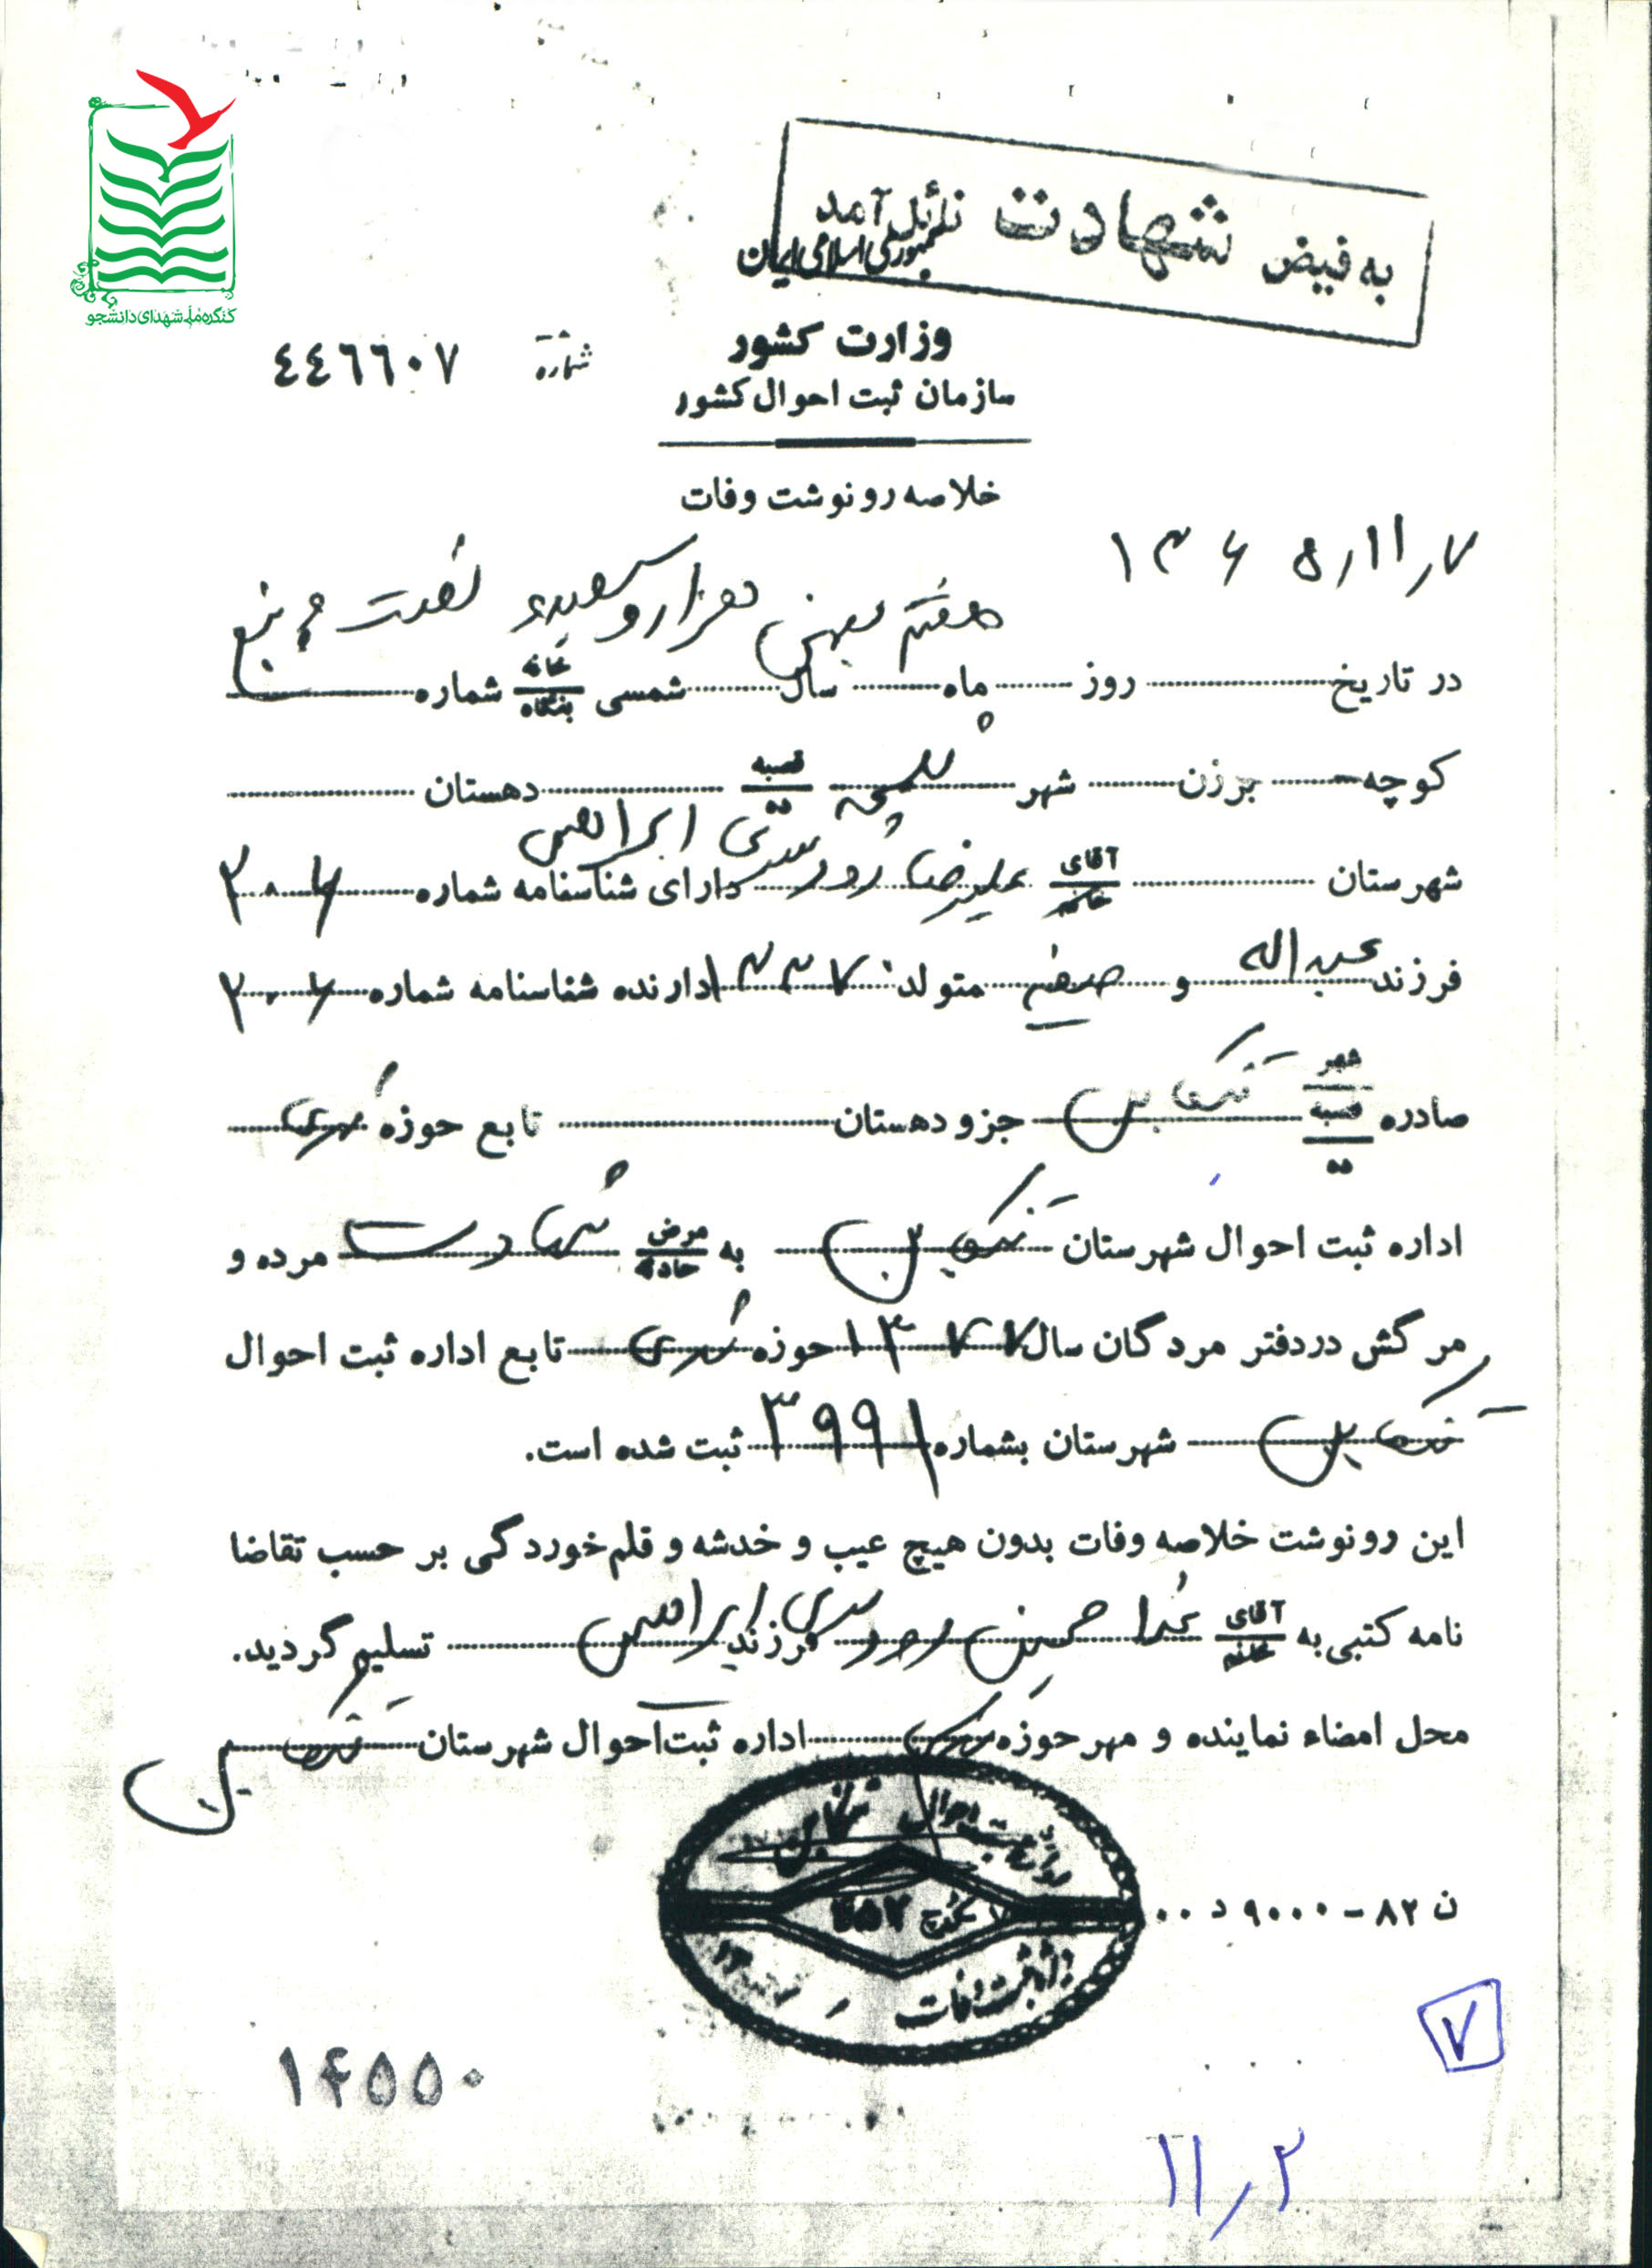 کنگره ملی شهدای دانشجو
به فیض شهادت نائل آمد
جمهوری اسلامی ایران
وزارت کشور
شماره ٤٤٦٦٠٧
سازمان ثبت احوال کشور
خلاصه رونوشت وفات
۱۳۶۵/۱۱/۷
هفتم بهمن هزار و سیصد و شصت و پنج
در تاریخ روز ماه سال شمسی خانه بنگاه شماره
کوچه برزن شهر قصبه ده دهستان
شهرستان آقای خانم علیرضا رودسری ابراهیمی دارای شناسنامه شماره ۲۰۰۶
فرزند عبداله و صفیه متولد ۱۳۳۷ دارنده شناسنامه شماره ۲۰۰۶
صادره شهر قصبه ده تنکابن جزو دهستان تابع حوزه مرکزی
اداره ثبت احوال شهرستان تنکابن به مرض حادثه شهادت مرده و
مرگش در دفتر مردگان سال ۱۳۷۷ حوزه مرکزی تابع اداره ثبت احوال
تنکابن شهرستان بشماره ۳۹۹۱ ثبت شده است.
این رونوشت خلاصه وفات بدون هیچ عیب و خدشه و قلم‌خوردگی بر حسب تقاضا
نامه کتبی به آقای خانم رودسری ابراهیمی فرزند تسلیم گردید.
محل امضاء نماینده و مهر حوزه مرکزی اداره ثبت احوال شهرستان تنکابن
ثبت احوال تنکابن
ثبت وفات
ن ۸۲ - ۹۰۰۰ د ۰۰
۷
۱۴۵۵۰
۱۱/۲